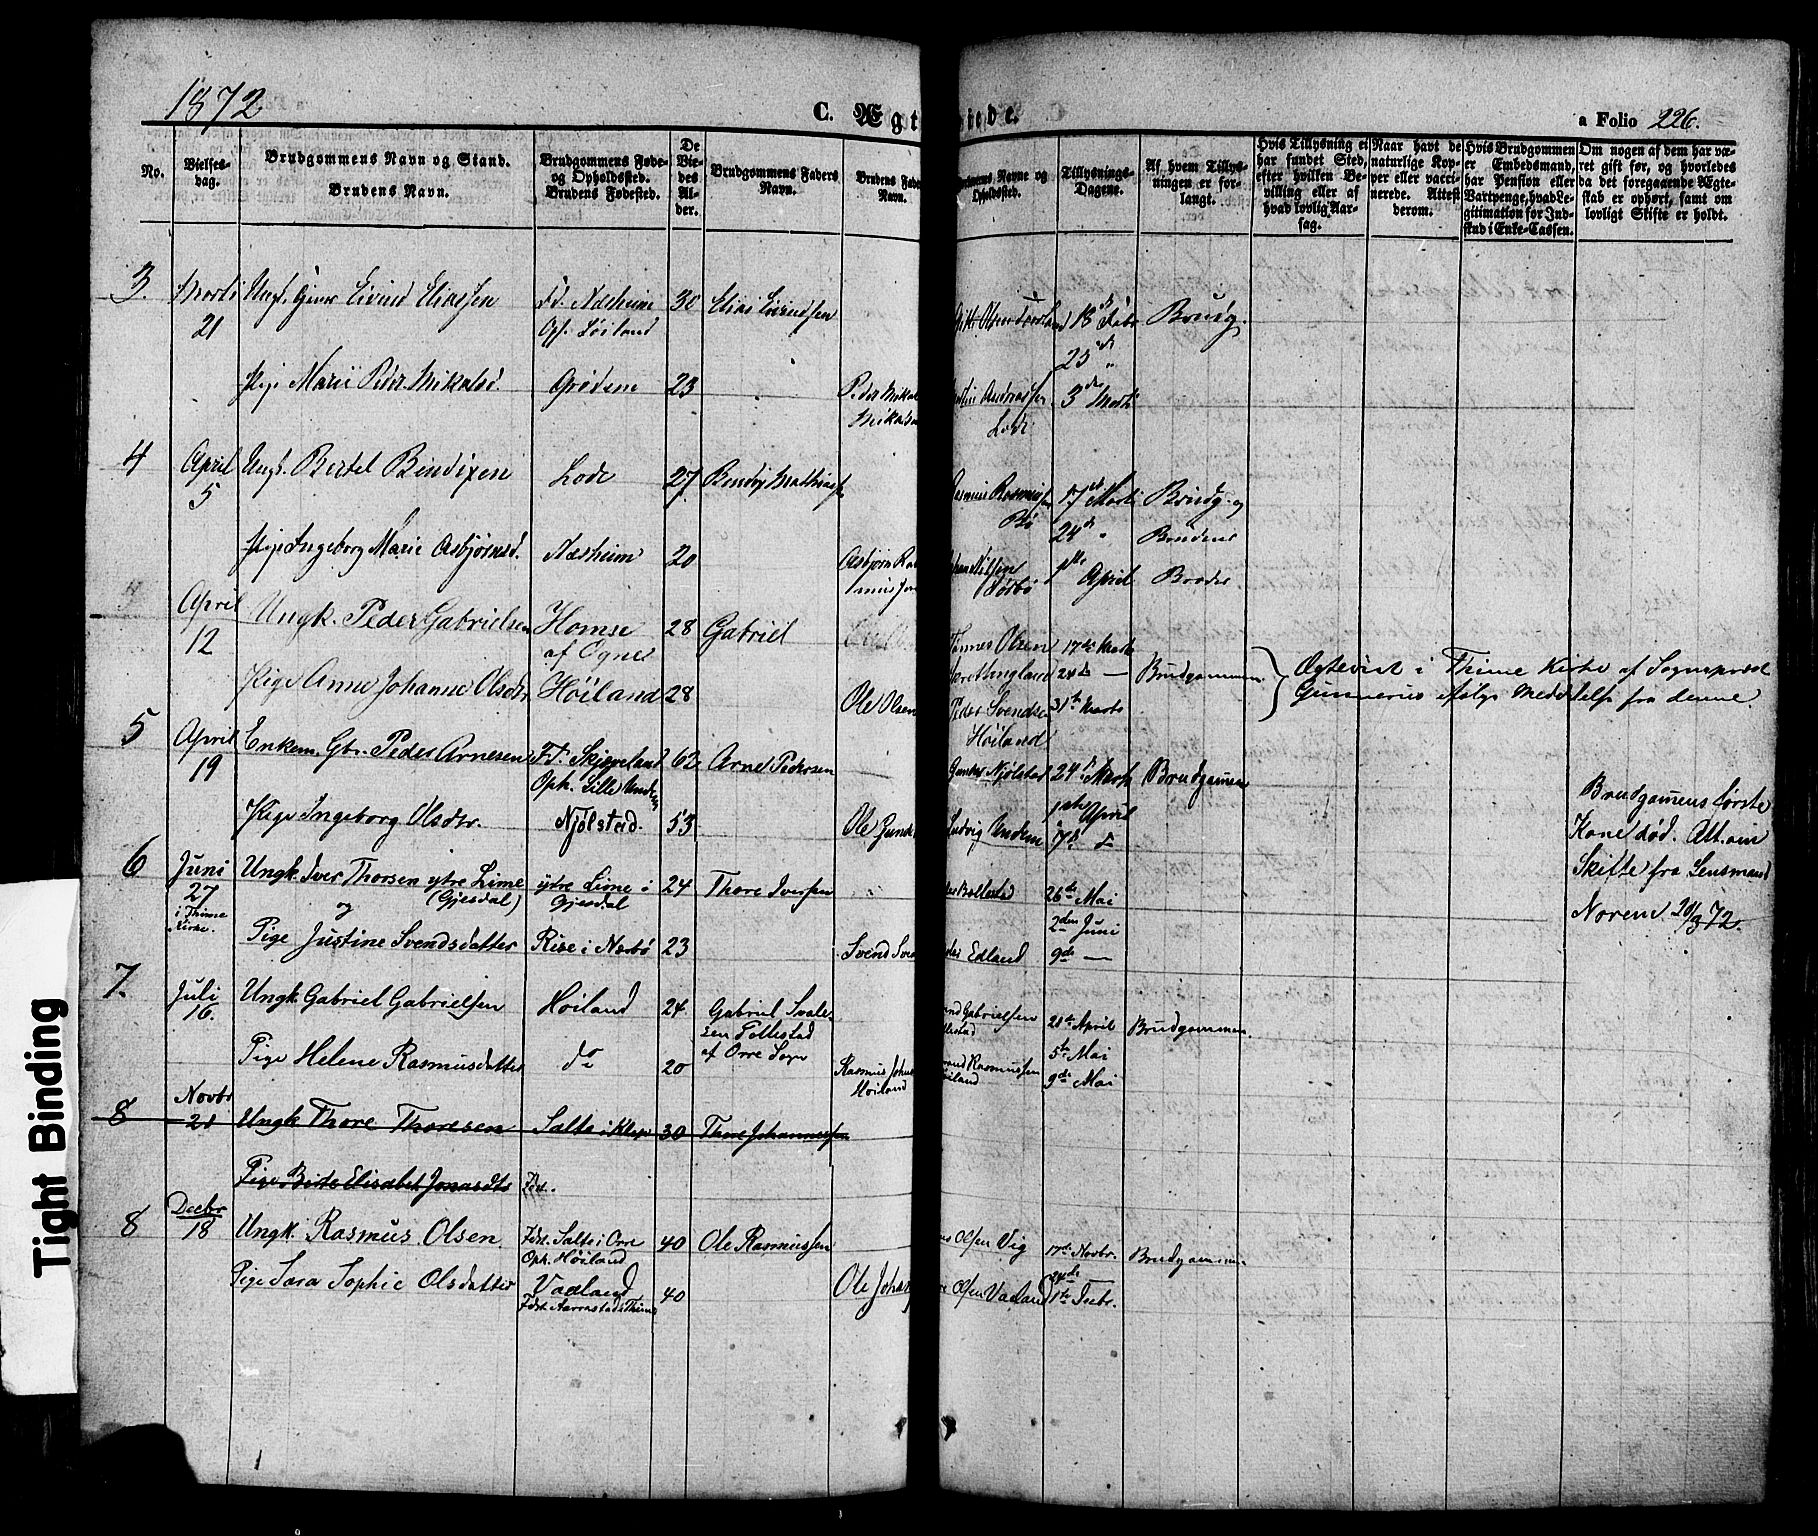 1872
C. Ægt
iede.
a Folio 226.
No.
Vielses-
dag.
Brudgommens Navn og Stand.
Brudens Navn.
Brudgommens Føde-
og Opholdssted.
Brudens Fødested.
De
Vie-
des
Al-
der.
Brudgommens Faders
Navn.
Brudens Faders
Navn.
Navne og
Opholdssted.
Tillysnings-
Dagene.
Af hvem Tillys-
ningen er for-
langt.
Hvis Tillysning ei
har fundet Sted,
efter hvilken Be-
villing eller af
hvad lovlig Aar-
sag.
Naar havt de
naturlige Kop-
per eller vacci-
nerede. Attest
derom.
Hvis Brudgommen
er Embedsmand,
har Pension eller
Vartpenge, hvad Le-
gitimation for Ind-
skud i Enke-Cassen.
Om nogen af dem har væ-
ret gift før, og hvorledes
da det foregaaende Ægte-
skab er ophørt, samt om
lovligt Skifte er holdt.
3. Marts 21 Ungk. Eivind Eliassen Fd. Næsheim 30 Elias Eivindsen 18de Febr Brudg.
Oph. Høiland
25de "
Pige Marie Peder Mikalsd. Grødem 23 Peder Mikal Mikalsen Andreassen 3de Marts
Lode
4 April 5 Ungk. Bertel Bendixen Lode 27 Rasmus Rasmussen Bø 17de Marts Brudg. og
24de " Brudens
Pige Ingeborg Marie Asbjørnsd. Næsheim 20 Asbjørn Ras
mussen Nilsen 1ste April Broder
April 12 Ungk. Peder Gabrielsen Homse 28 Gabriel
af Ogne
Tønnes Olsen 17de Marts
24de — Brudgommen
Ægteviet i Thime Kirke af Sognepræst
Gunnerus ifølge Meddelelse fra denne
Pige Anne Johanne Olsdtr Høiland 28 Ole Olsen Peder Svendsen 31te Marts
Høiland
5 April 19 Enkem. Gbr. Peder Arnesen Fd. Skjæveland 62 Arne Pedersen Gunder Njølstad 24de Marts Brudgommen
Oph. Lille Undem
1ste April
Pige Ingeborg Olsdtr. Njølstad. 53 Ole Gunde Ludvig Undem 7de do
Brudgommens første
Kone død. Att. om
Skifte fra Lensmand
Noren 20/3 72.
6 Juni 27 Ungk. Iver Thorsen ytre Lime ytre Lime i 24 Thore Iversen Bollestad 26de Mai
i Thime
Kirke.
(Gjesdal) Gjesdal
og
2den Juni
Pige Justine Svendsdatter Rise i Nærbø 23 Svend Sve Edland 9de —
7. Juli 16. Ungk. Gabriel Gabrielsen Høiland 24 Gabriel Svale-
sen Tollestad
af Orre Sogn
Gabrielsen 21de April Brudgommen
5te Mai
Pige Helene Rasmusdatter do 20 Rasmus Johns
Høiland
Rasmussen 9de Mai
Høiland
8 Novbr 21 Ungk. Thore Thoresen Salte i Klep 30 Thore Johannessen
Pige Birte Elisabet Jonasdtr Fdt.
8 Decbr 18 Ungk. Rasmus Olsen Fdt. Salte i Orre 40 Ole Rasmussen Olsen Vig 17de Novbr. Brudgommen
Oph. Høiland
24de
Pige Sara Sophie Olsdatter Vadland 40 Ole Johan Olsen Vadland 1te Decbr.
Fdt. Aarrestad i Thime
Tight Binding